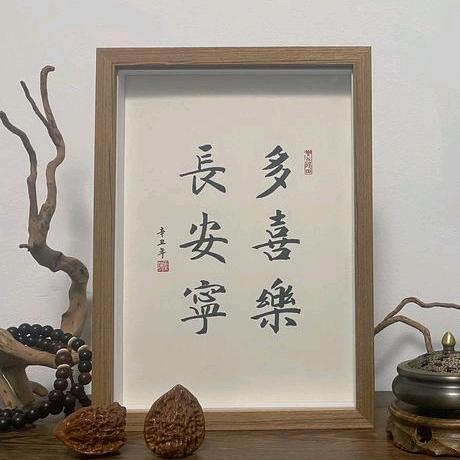 多喜樂
長安寧
辛丑年